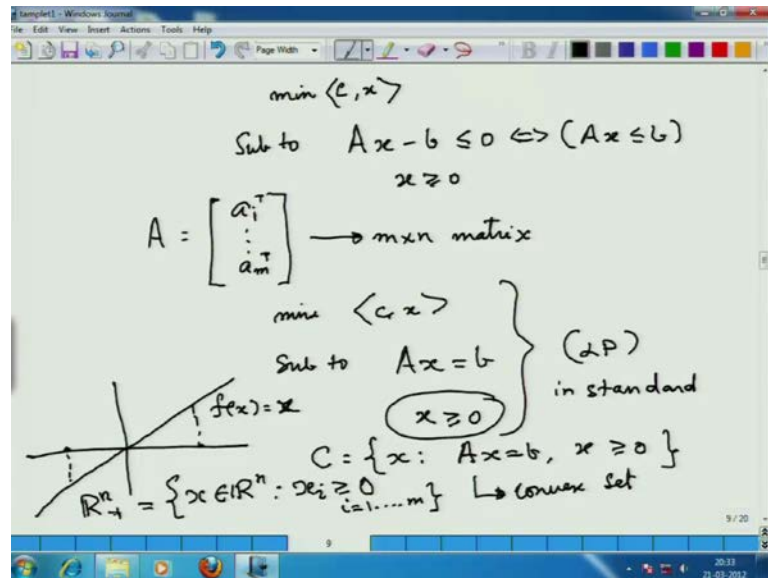 tamplet1 - Windows Journal
File Edit View Insert Actions Tools Help
Page Width B I
min ⟨c, x⟩
Sub to Ax - b ≤ 0 ⟺ (Ax ≤ b)
x ≥ 0
A = [a_i^T ⋮ a_m^T] ⟶ m×n matrix
min ⟨c, x⟩
Sub to Ax = b
x ≥ 0
(LP)
in standard
f(x) = x
C = {x : Ax = b, x ≥ 0}
ℝ^n_+ = {x ∈ ℝ^n : x_i ≥ 0 i = 1....m}
↳ convex set
9 / 20
9
20:33
21-03-2012